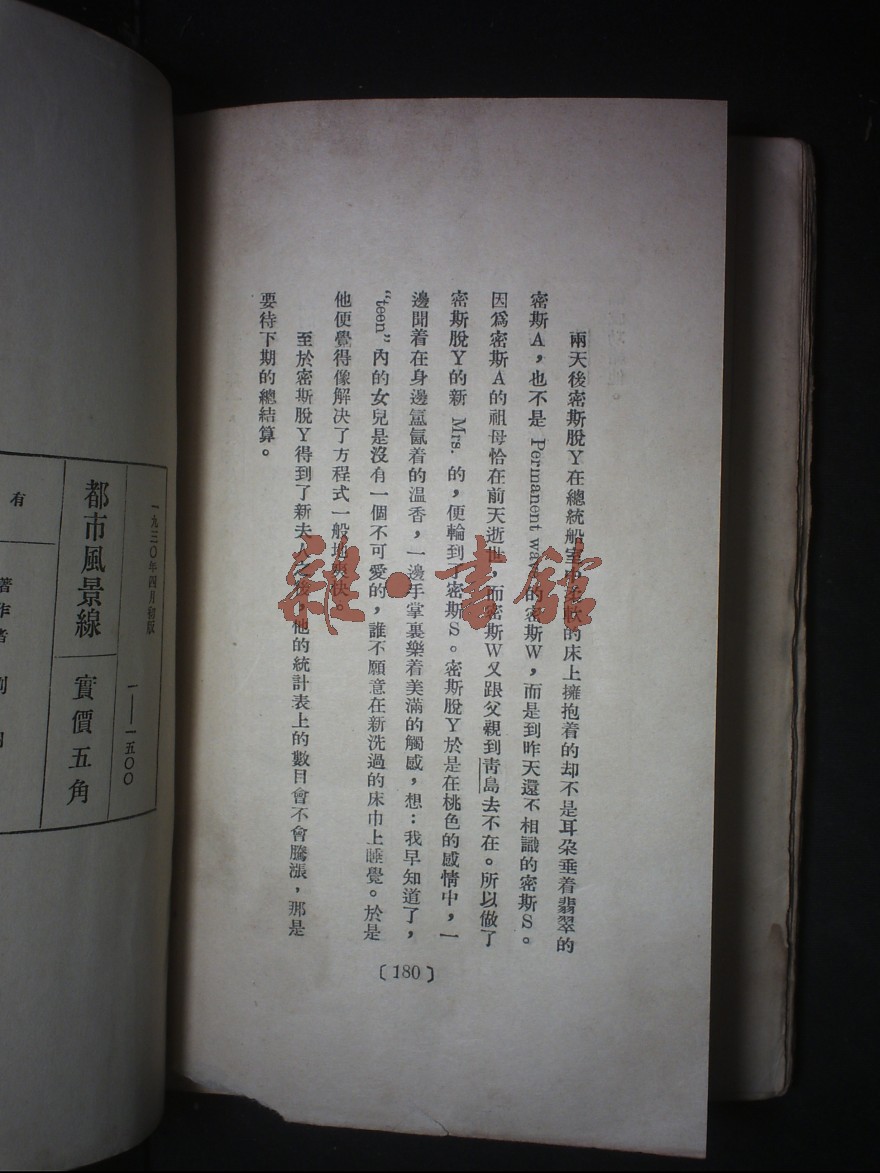 兩天後密斯脫Y在總統船室中柔軟的床上擁抱着的却不是耳朶垂着翡翠的
密斯A，也不是 Permanent wave 的密斯W，而是到昨天還不相識的密斯S。
因爲密斯A的祖母恰在前天逝世，而密斯W又跟父親到靑島去不在。所以做了
密斯脫Y的新 Mrs. 的，便輪到了密斯S。密斯脫Y於是在桃色的感情中，一
邊聞着在身邊氳氤着的溫香，一邊手掌裏樂着美滿的觸感，想：我早知道了，
“teen”內的女兒是沒有一個不可愛的，誰不願意在新洗過的床巾上睡覺。於是
他便覺得像解決了方程式一般地爽快。
至於密斯脫Y得到了新夫人之後，他的統計表上的數目會不會騰漲，那是
要待下期的總結算。
〔180〕
雜·書館
一九三〇年四月初版
一——一五〇〇
都市風景線
實價五角
有
著作者